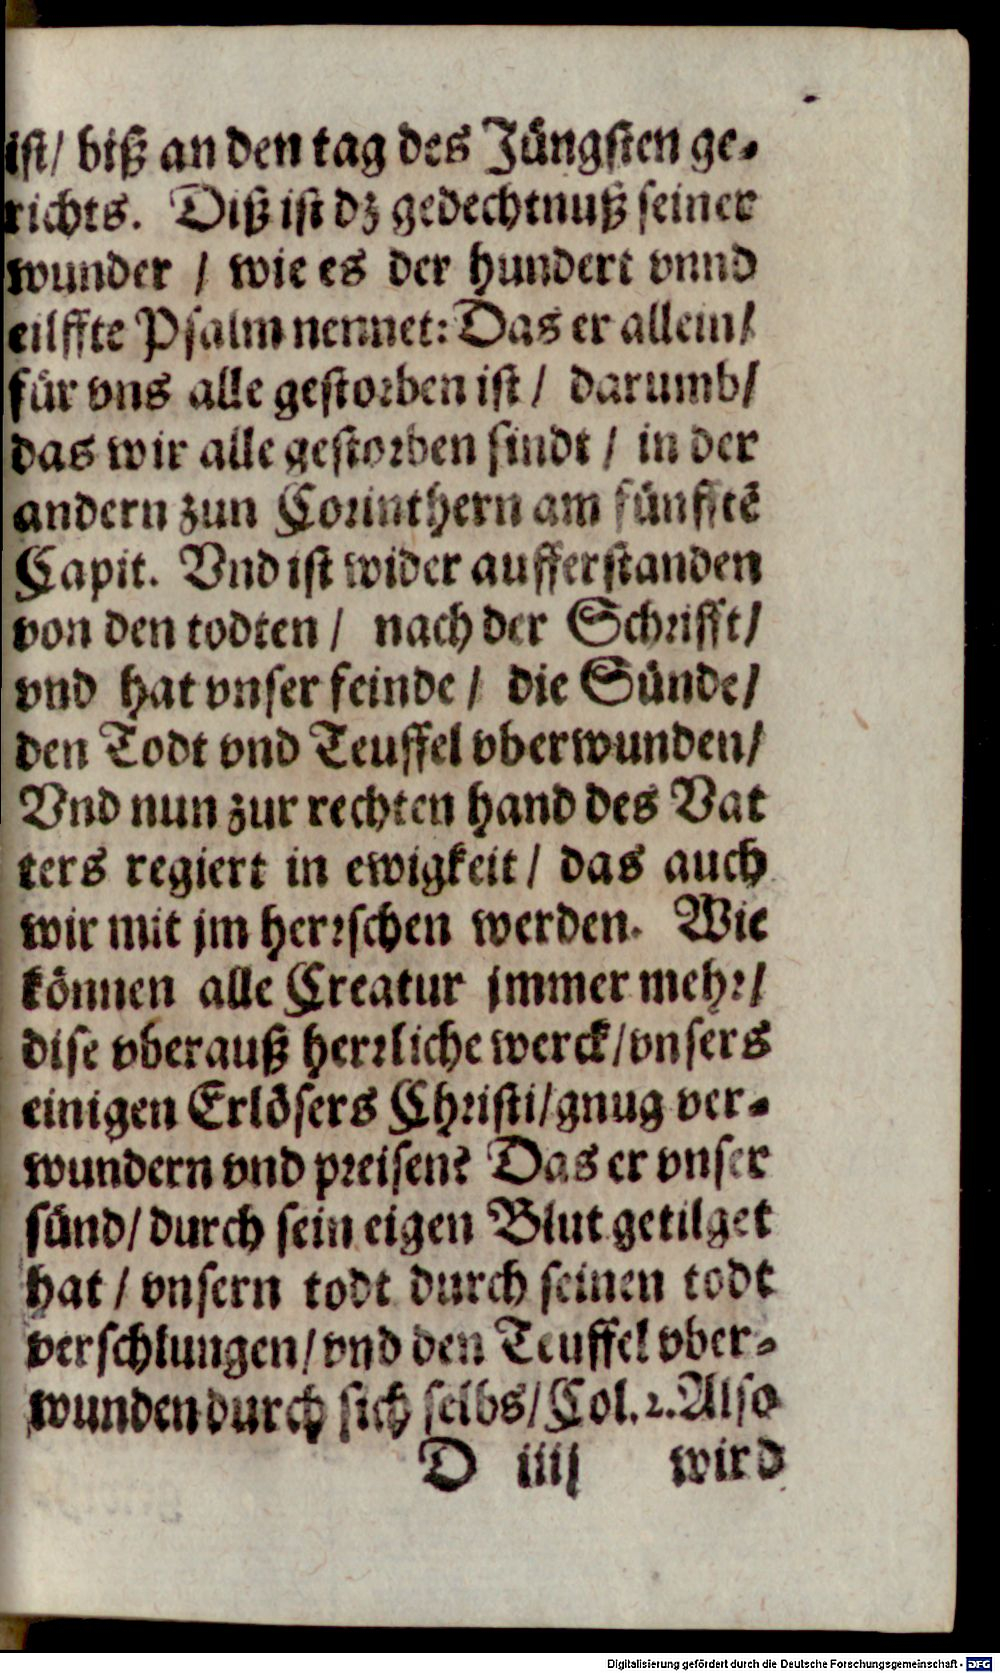 ist/ biß an den tag des Jüngsten ge-
richts. Diß ist dz gedechtnuß seiner
wunder / wie es der hundert vnnd
eilffte Psalm nennet: Das er allein/
für vns alle gestorben ist / darumb/
das wir alle gestorben sindt / in der
andern zun Corinthern am fünfftē
Capit. Vnd ist wider aufferstanden
von den todten / nach der Schrifft/
vnd hat vnser feinde / die Sünde/
den Todt vnd Teuffel vberwunden/
Vnd nun zur rechten hand des Vat
ters regiert in ewigkeit / das auch
wir mit jm herrschen werden. Wie
können alle Creatur jmmer mehr/
dise vberauß herrliche werck/vnsers
einigen Erlösers Christi/gnug ver-
wundern vnd preisen? Das er vnser
sünd/durch sein eigen Blut getilget
hat / vnsern todt durch seinen todt
verschlungen/vnd den Teuffel vber-
wunden durch sich selbs/Col. 2. Also
D iiij wird
Digitalisierung gefördert durch die Deutsche Forschungsgemeinschaft - DFG